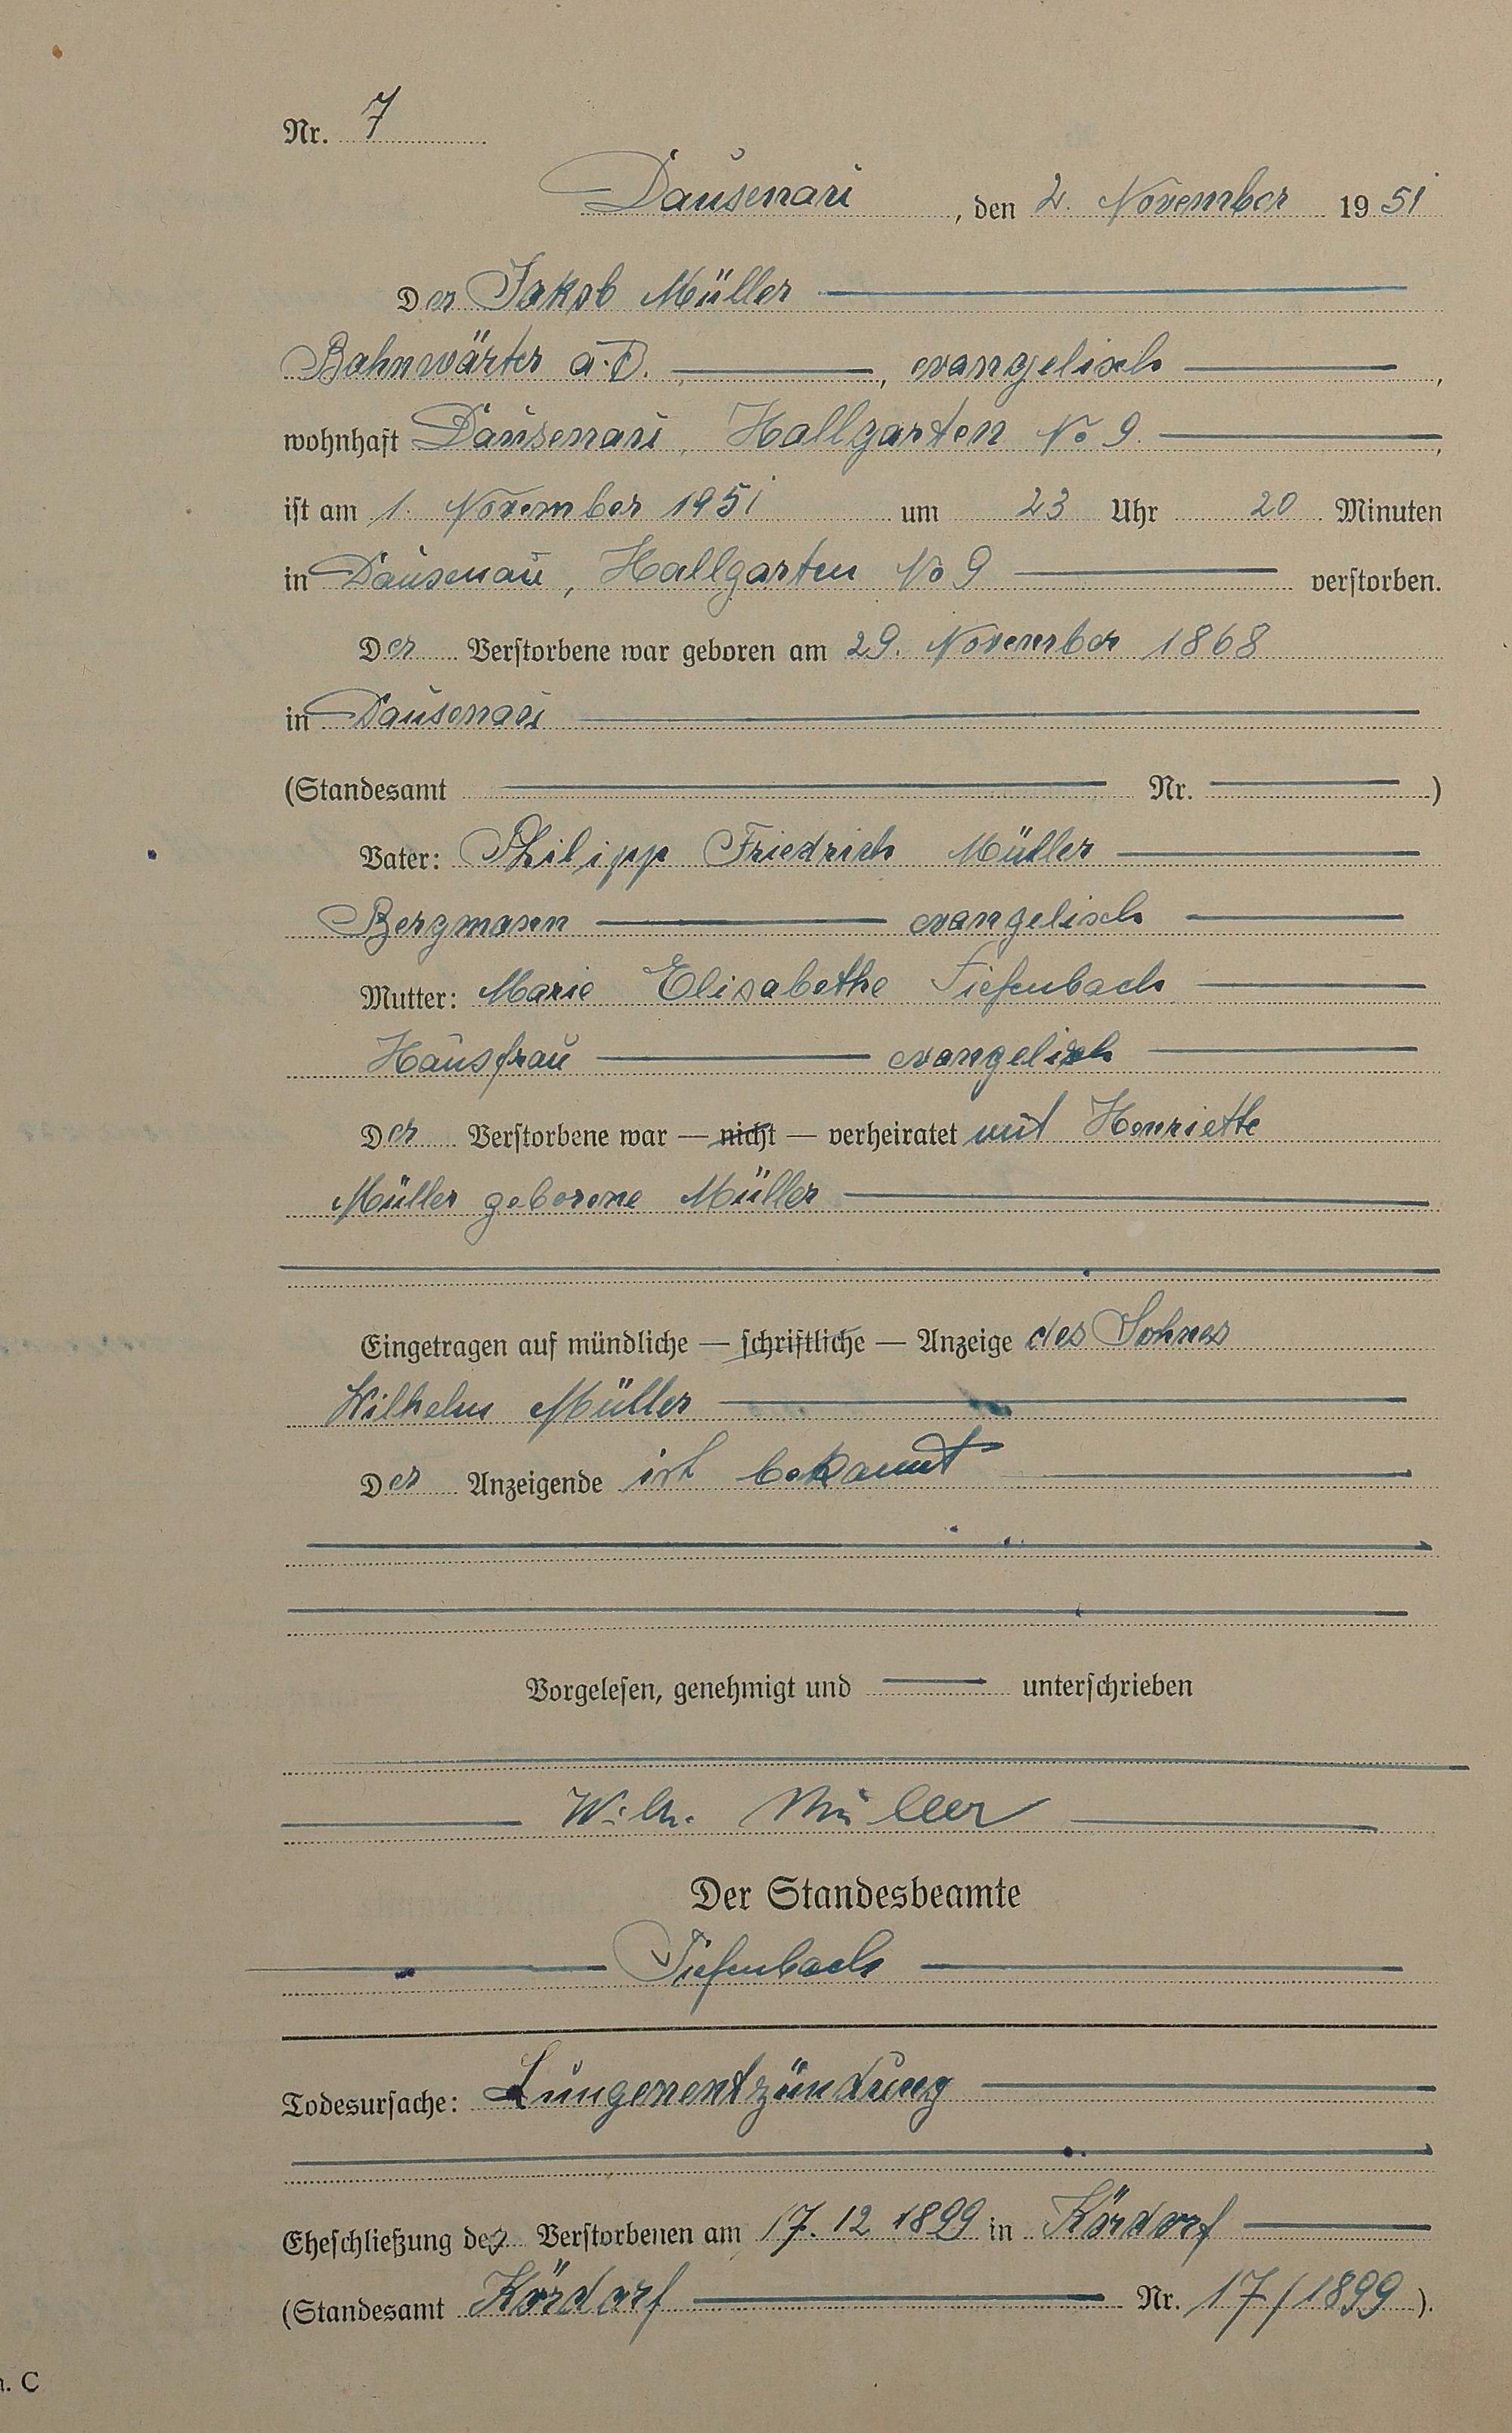 Nr. 7
Dausenau, den 2. November 1951
Der Jakob Müller
Bahnwärter a.D., evangelisch,
wohnhaft Dausenau, Hallgarten No 9.,
ist am 1. November 1951 um 23 Uhr 20 Minuten
in Dausenau, Hallgarten No 9 verstorben.
Der Verstorbene war geboren am 29. November 1868
in Dausenau
(Standesamt Nr. )
Vater: Philipp Friedrich Müller
Bergmann evangelisch
Mutter: Marie Elisabethe Tiefenbach
Hausfrau evangelisch
Der Verstorbene war — nicht — verheiratet mit Henriette
Müller geborene Müller
Eingetragen auf mündliche — schriftliche — Anzeige des Sohnes
Wilhelm Müller
Der Anzeigende ist bekannt
Vorgelesen, genehmigt und unterschrieben
Wilh. Müller
Der Standesbeamte
Tiefenbach
Todesursache: Lungenentzündung
Eheschließung des Verstorbenen am 17.12 1899 in Kördorf
(Standesamt Kördorf Nr. 17/1899).
C